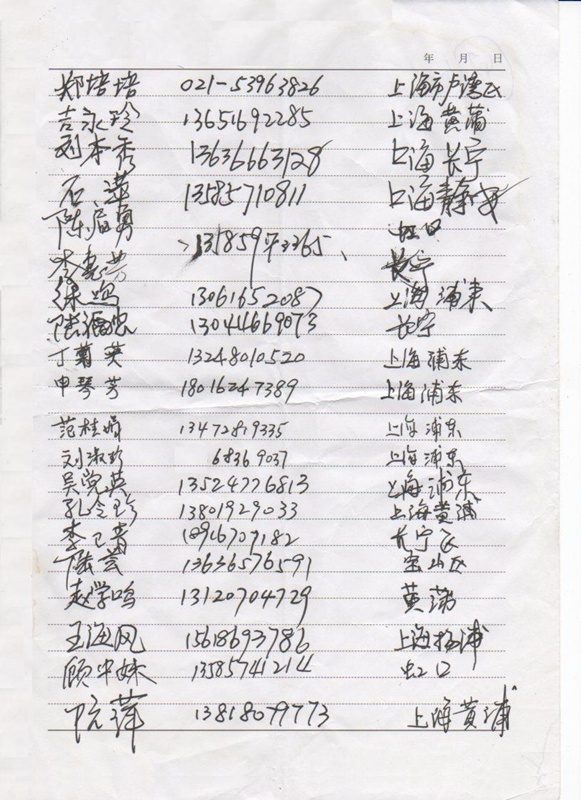 年 月 日
郑培培 021-53963826 上海市卢湾区
吉永玲 13651692285 上海黄浦
刘本秀 13636663128 上海长宁
石萍 13585710811 上海静安
陈眉勇 虹口
长宁
徐鸣 13061652087 上海浦东
13044669073 长宁
丁菊英 13248010520 上海浦东
申琴芳 18016247389 上海浦东
范桂娟 13472819335 上海浦东
刘淑珍 68369037 上海浦东
吴党英 13524776813 上海浦东
孔令珍 13801929033 上海黄浦
18946707182 长宁区
陆芸 13636576591 宝山区
赵学鸣 13120704729 黄浦
王海风 15618693786 上海杨浦
顾中妹 13585741214 虹口
阮萍 13818079773 上海黄浦